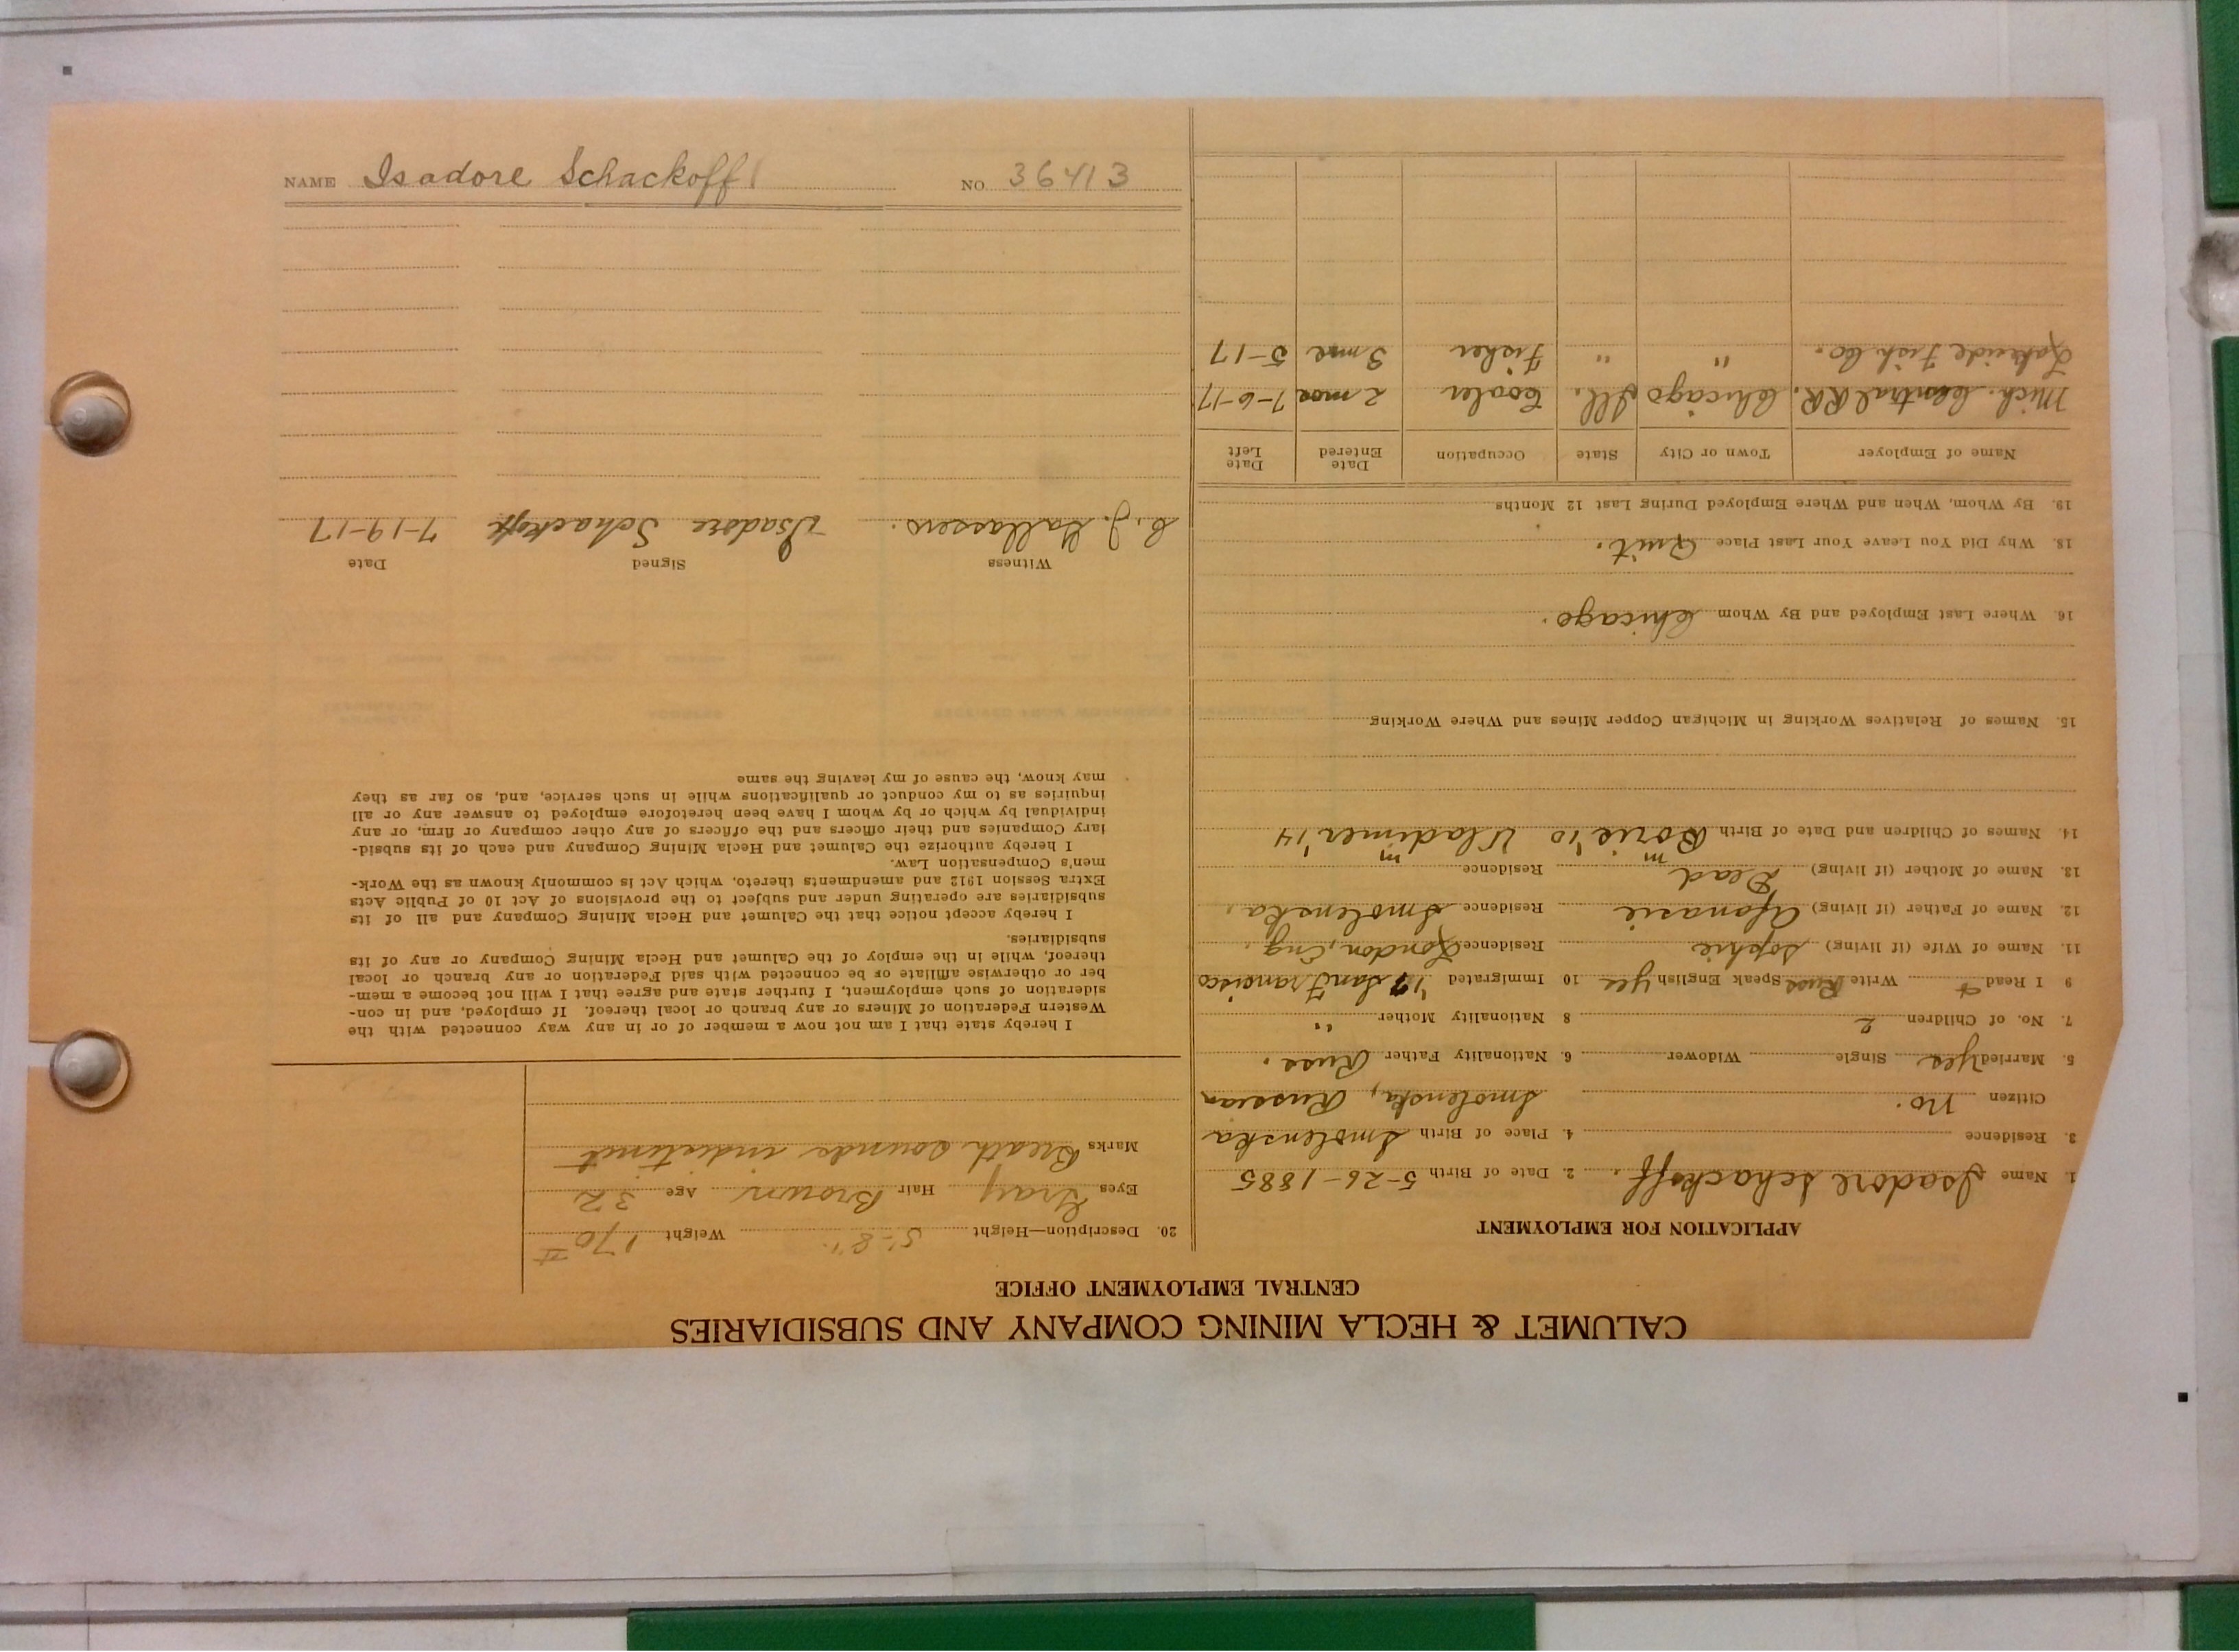 CALUMET & HECLA MINING COMPANY AND SUBSIDIARIES
CENTRAL EMPLOYMENT OFFICE
APPLICATION FOR EMPLOYMENT
1. Name Isadore Schackoff. 2. Date of Birth 5-26-1885
3. Residence 4. Place of Birth Smolenska
Citizen no. Smolenska, Russian
5. Married yes Single Widower 6. Nationality Father Russ.
7. No. of Children 2 8 Nationality Mother "
9 I Read + Write Russ Speak English yes 10 Immigrated '17 San Francisco
11. Name of Wife (if living) Sophie Residence London, Eng.
12. Name of Father (if living) Afonasie Residence Smolenska.
13. Name of Mother (if living) Dead Residence
14. Names of Children and Date of Birth Boris '10 m Vladimer '14 m
15. Names of Relatives Working in Michigan Copper Mines and Where Working
16. Where Last Employed and By Whom Chicago.
18. Why Did You Leave Your Last Place Quit.
19. By Whom, When and Where Employed During Last 12 Months
Name of Employer Town or City State Occupation Date Entered Date Left
Mich. Central RR. Chicago Ill. Cooler 2 mos 7-6-17
Lakeside Fish Co. " " Fisher 3 mos 5-17
20. Description—Height 5'-8" Weight 170 #
Eyes Gray Hair Brown Age 32
Marks Breath sounds indistinct
I hereby state that I am not now a member of or in any way connected with the
Western Federation of Miners or any branch or local thereof. If employed, and in con-
sideration of such employment, I further state and agree that I will not become a mem-
ber or otherwise affiliate or be connected with said Federation or any branch or local
thereof, while in the employ of the Calumet and Hecla Mining Company or any of its
subsidiaries.
I hereby accept notice that the Calumet and Hecla Mining Company and all of its
subsidiaries are operating under and subject to the provisions of Act 10 of Public Acts
Extra Session 1912 and amendments thereto, which Act is commonly known as the Work-
men's Compensation Law.
I hereby authorize the Calumet and Hecla Mining Company and each of its subsid-
iary Companies and their officers and the officers of any other company or firm, or any
individual by which or by whom I have been heretofore employed to answer any or all
inquiries as to my conduct or qualifications while in such service, and, so far as they
may know, the cause of my leaving the same
Witness Signed Date
C. J. Isadore Schackoff 7-19-17
NAME Isadore Schackoff NO 36413